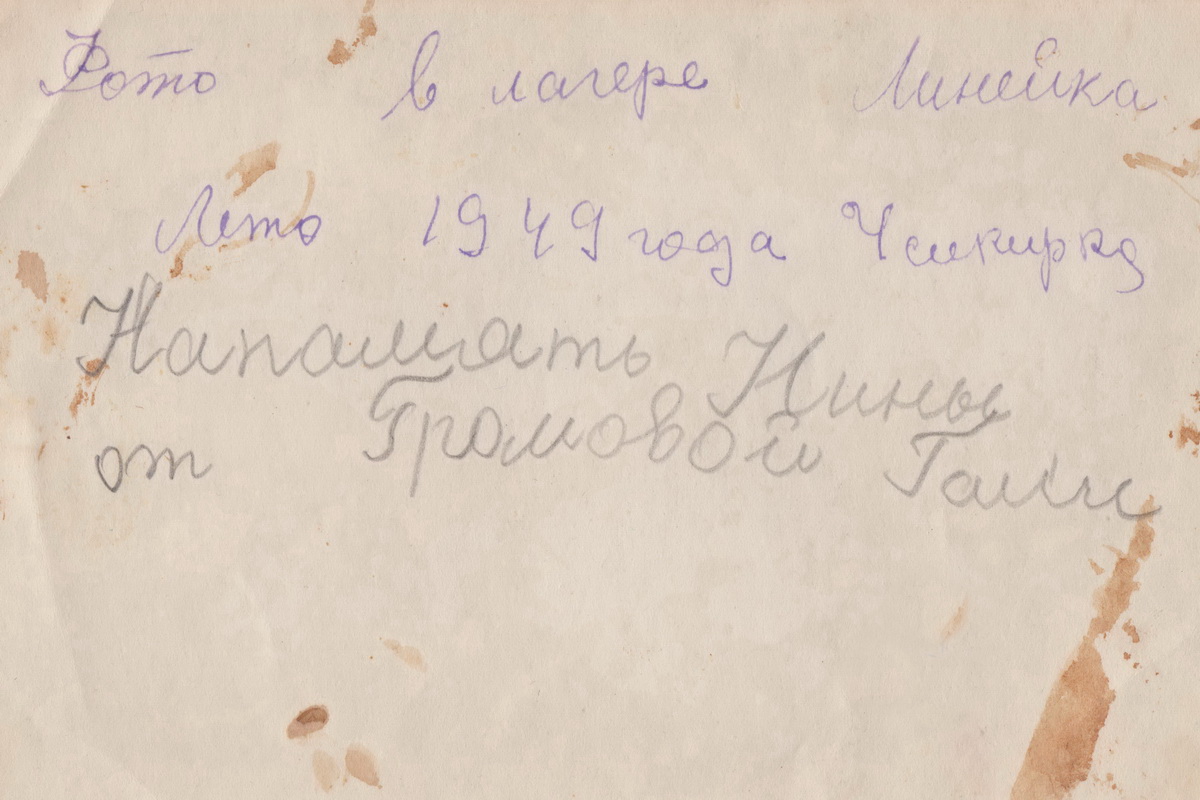 Фото в лагере Линейка
Лето 1949 года Чемкирка
Напамять Нины
от Громовой Гали